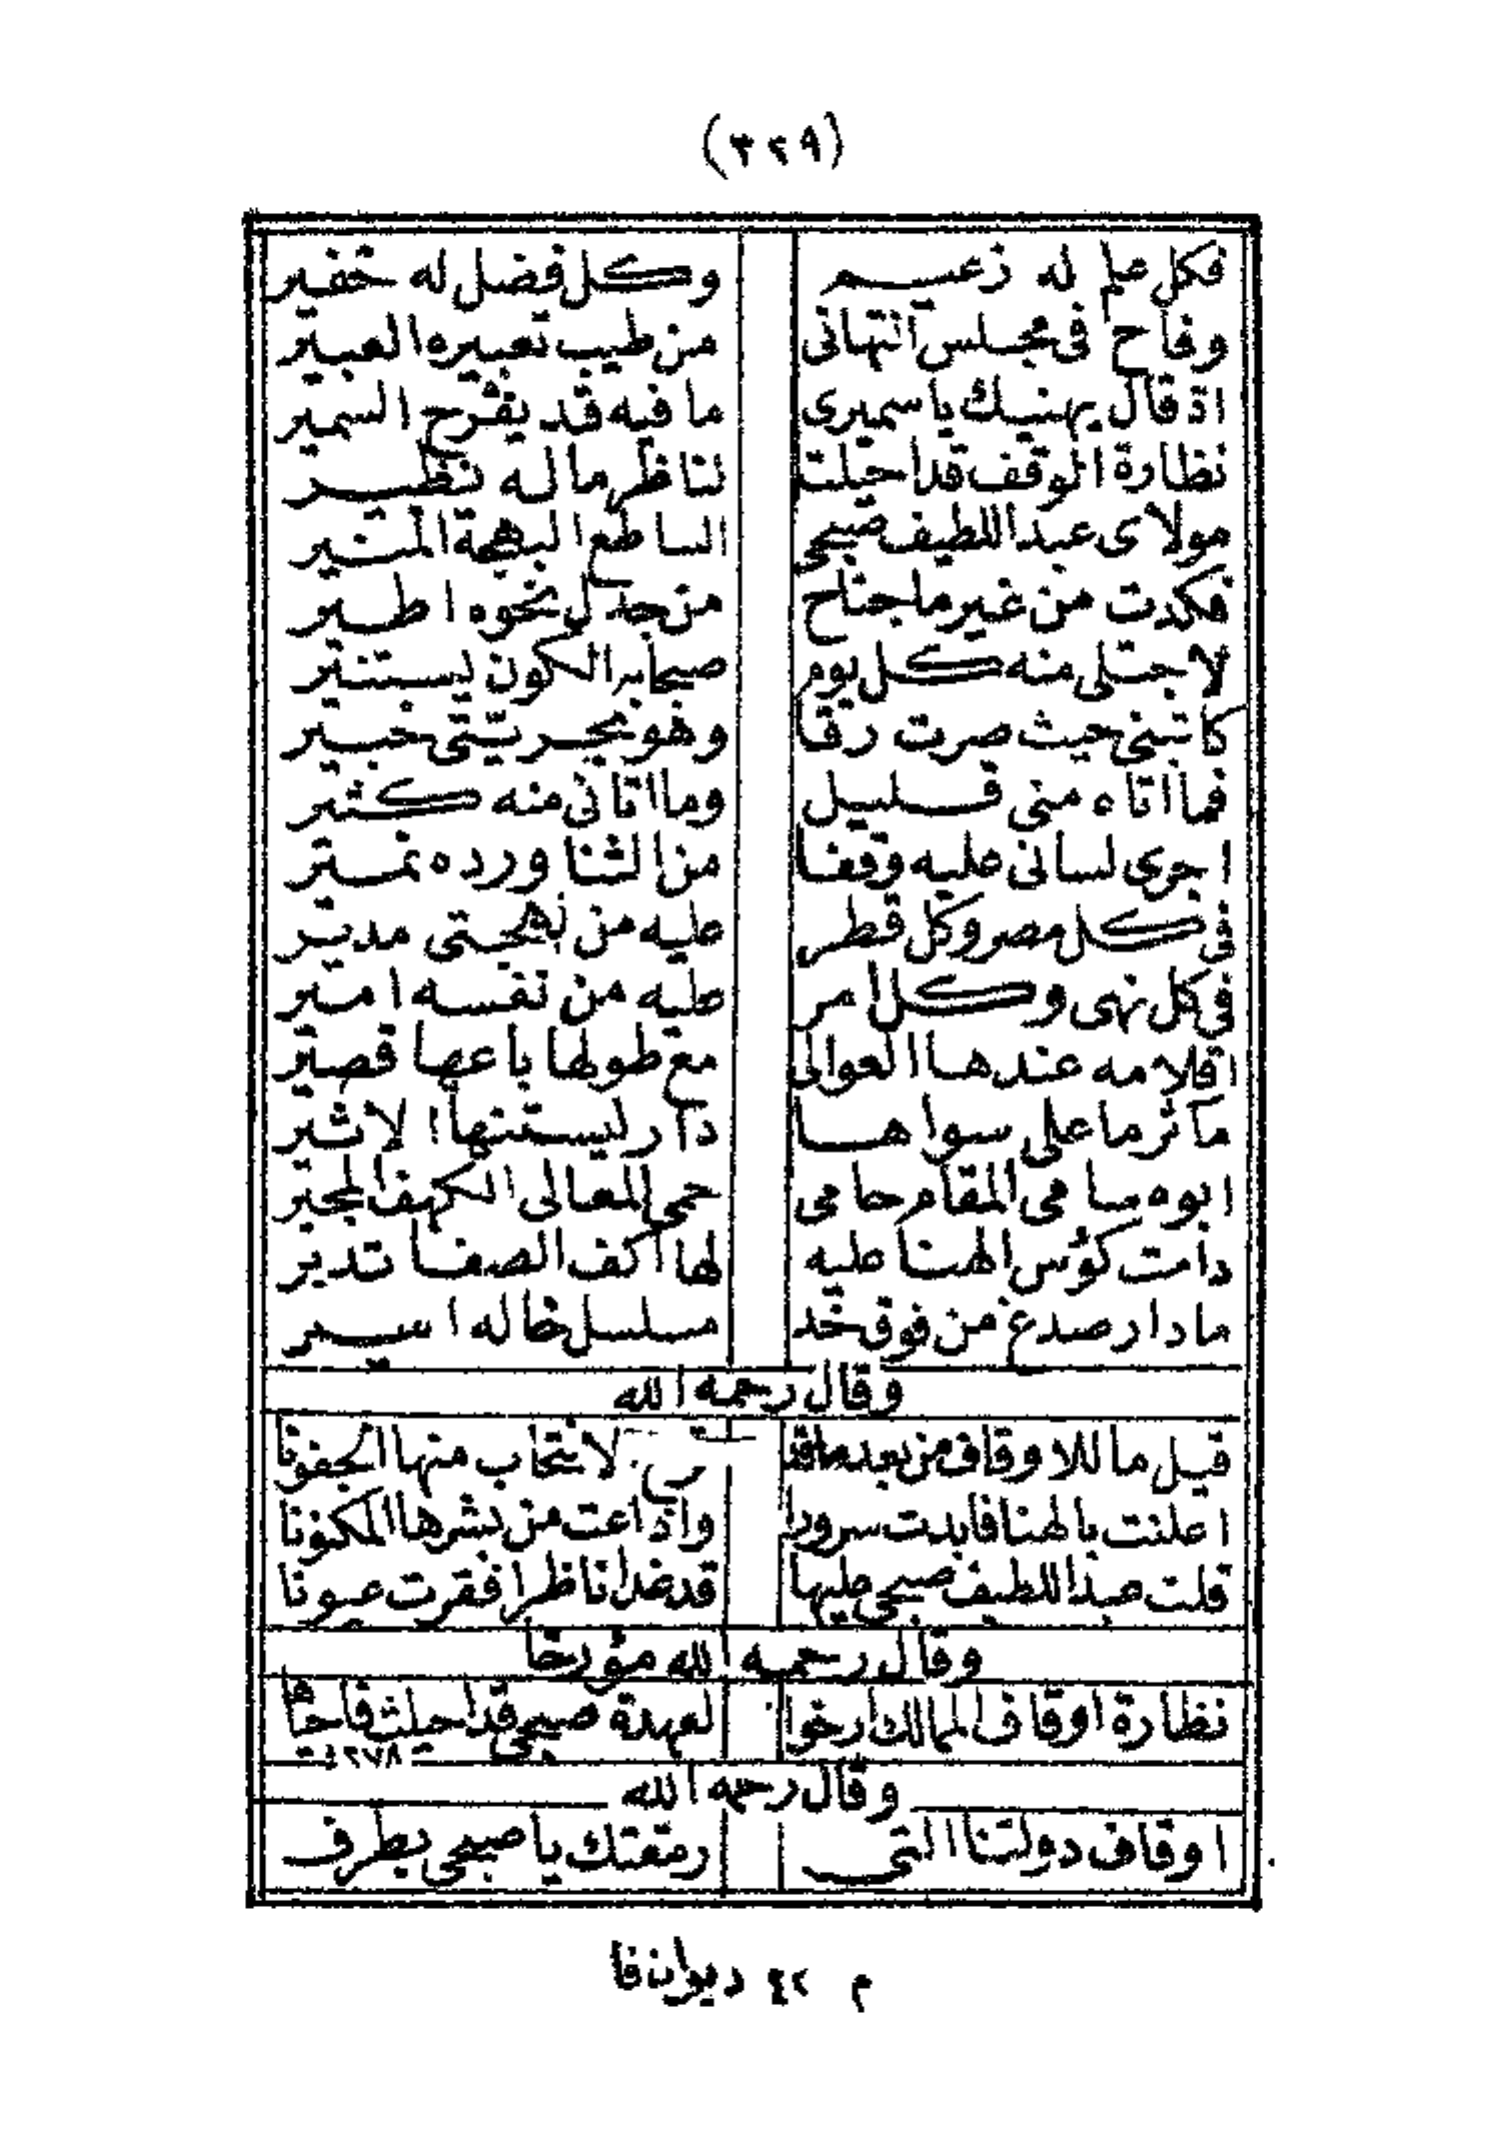 (٣٢٩)
فكل علم له زعيم وكل فضل له خفير
وفاح في مجلس التهاني من طيب تعبيره العبير
اذ قال يهنيك ياسميري ما فيه قد يفرح السمير
نظارة الوقف قد احيلت لناظر ماله نظير
مولاي عبد اللطيف صبحي الساطع البهجة المنير
فكدت من غير ما جناح من جذل نحوه اطير
لاجتلى منه كل يوم صبحا به الكون يستنير
كاتبني حيث صرت رقا وهو بحريتي خبير
فما اتاه مني قليل وما اتاني منه كثير
اجرى لساني عليه وقفا من الثنا ورده نمير
في كل مصر وكل قطر عليه من بهجتي مدير
في كل نهى وكل امر عليه من نفسه امير
اقلامه عندها العوالى مع طولها باعها قصير
مآثر ما على سواها دار ليستنها الاثير
ابوه سامى المقام حامى حمى المعالى الكهف المجير
دامت كؤس الهنا عليه لها اكف الصفا تدير
مادار صدغ من فوق خد مسلسل خاله اسير
وقال رحمه الله
قيل ما للاوقاف من بعد ما قد لانتحاب منها الجفونا
اعلنت بالهنا فابدت سرورا واذاعت من بشرها المكنونا
قلت عبد اللطيف صبحي عليها قد غدا ناظرا فقرت عيونا
وقال رحمه الله مؤرخا
نظارة اوقاف الممالك ارخوا لعهدة صبحي قد احيلت فاحياها
١٢٧٨
وقال رحمه الله
اوقاف دولتنا التي رمقتك يا صبحي بطرف
م ٤٢ ديوان فا